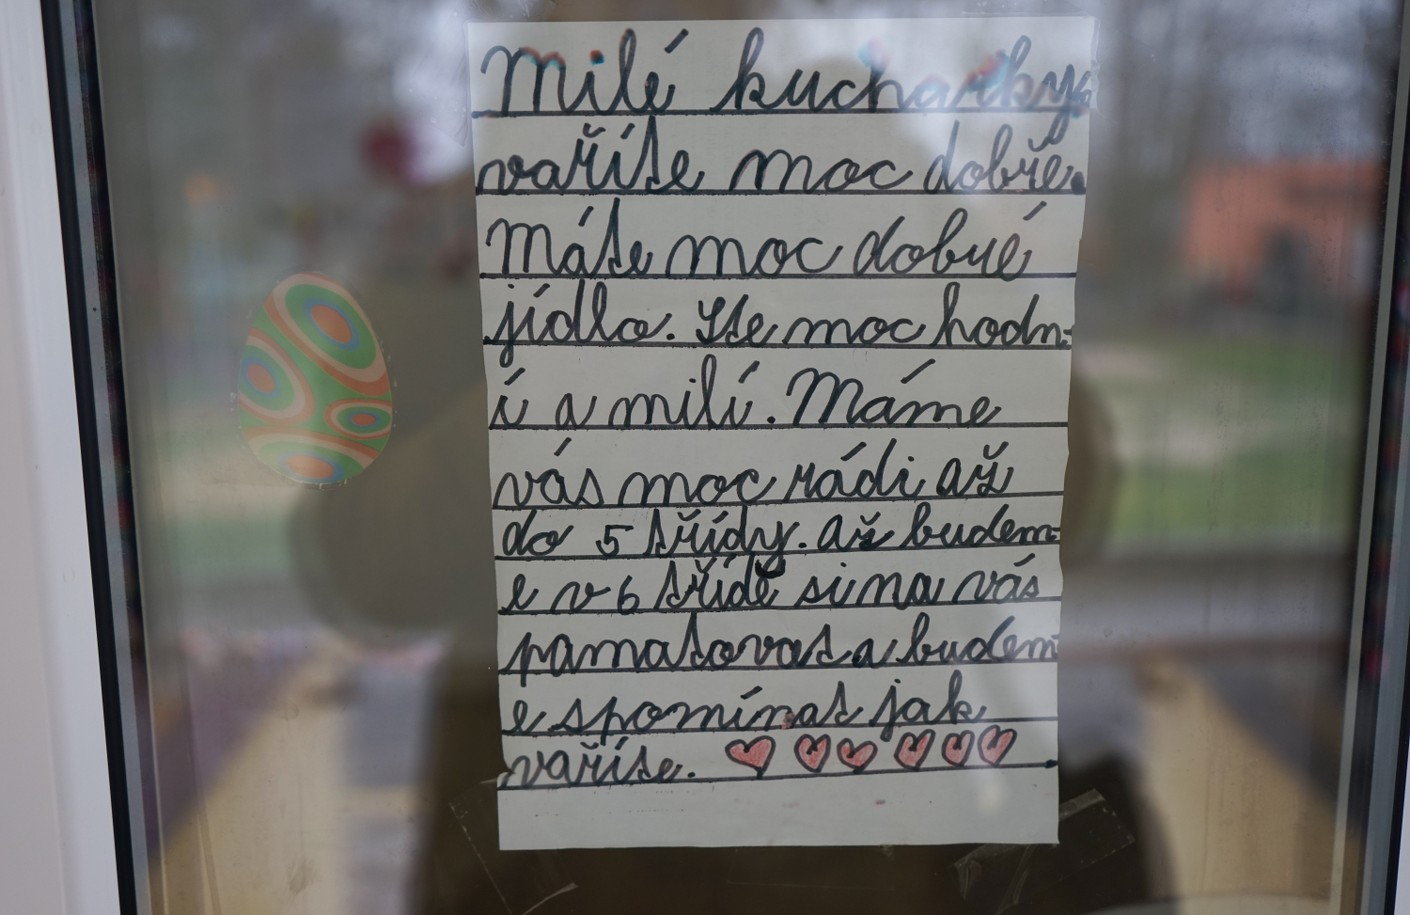 Milé kuchařky
vaříte moc dobře.
Máte moc dobré
jídlo. Ste moc hodn-
í a milí. Máme
vás moc rádi až
do 5 třídy. až budem-
e v 6 třídě si na vás
pamatovat a budem-
e spomínat jak
vaříte.